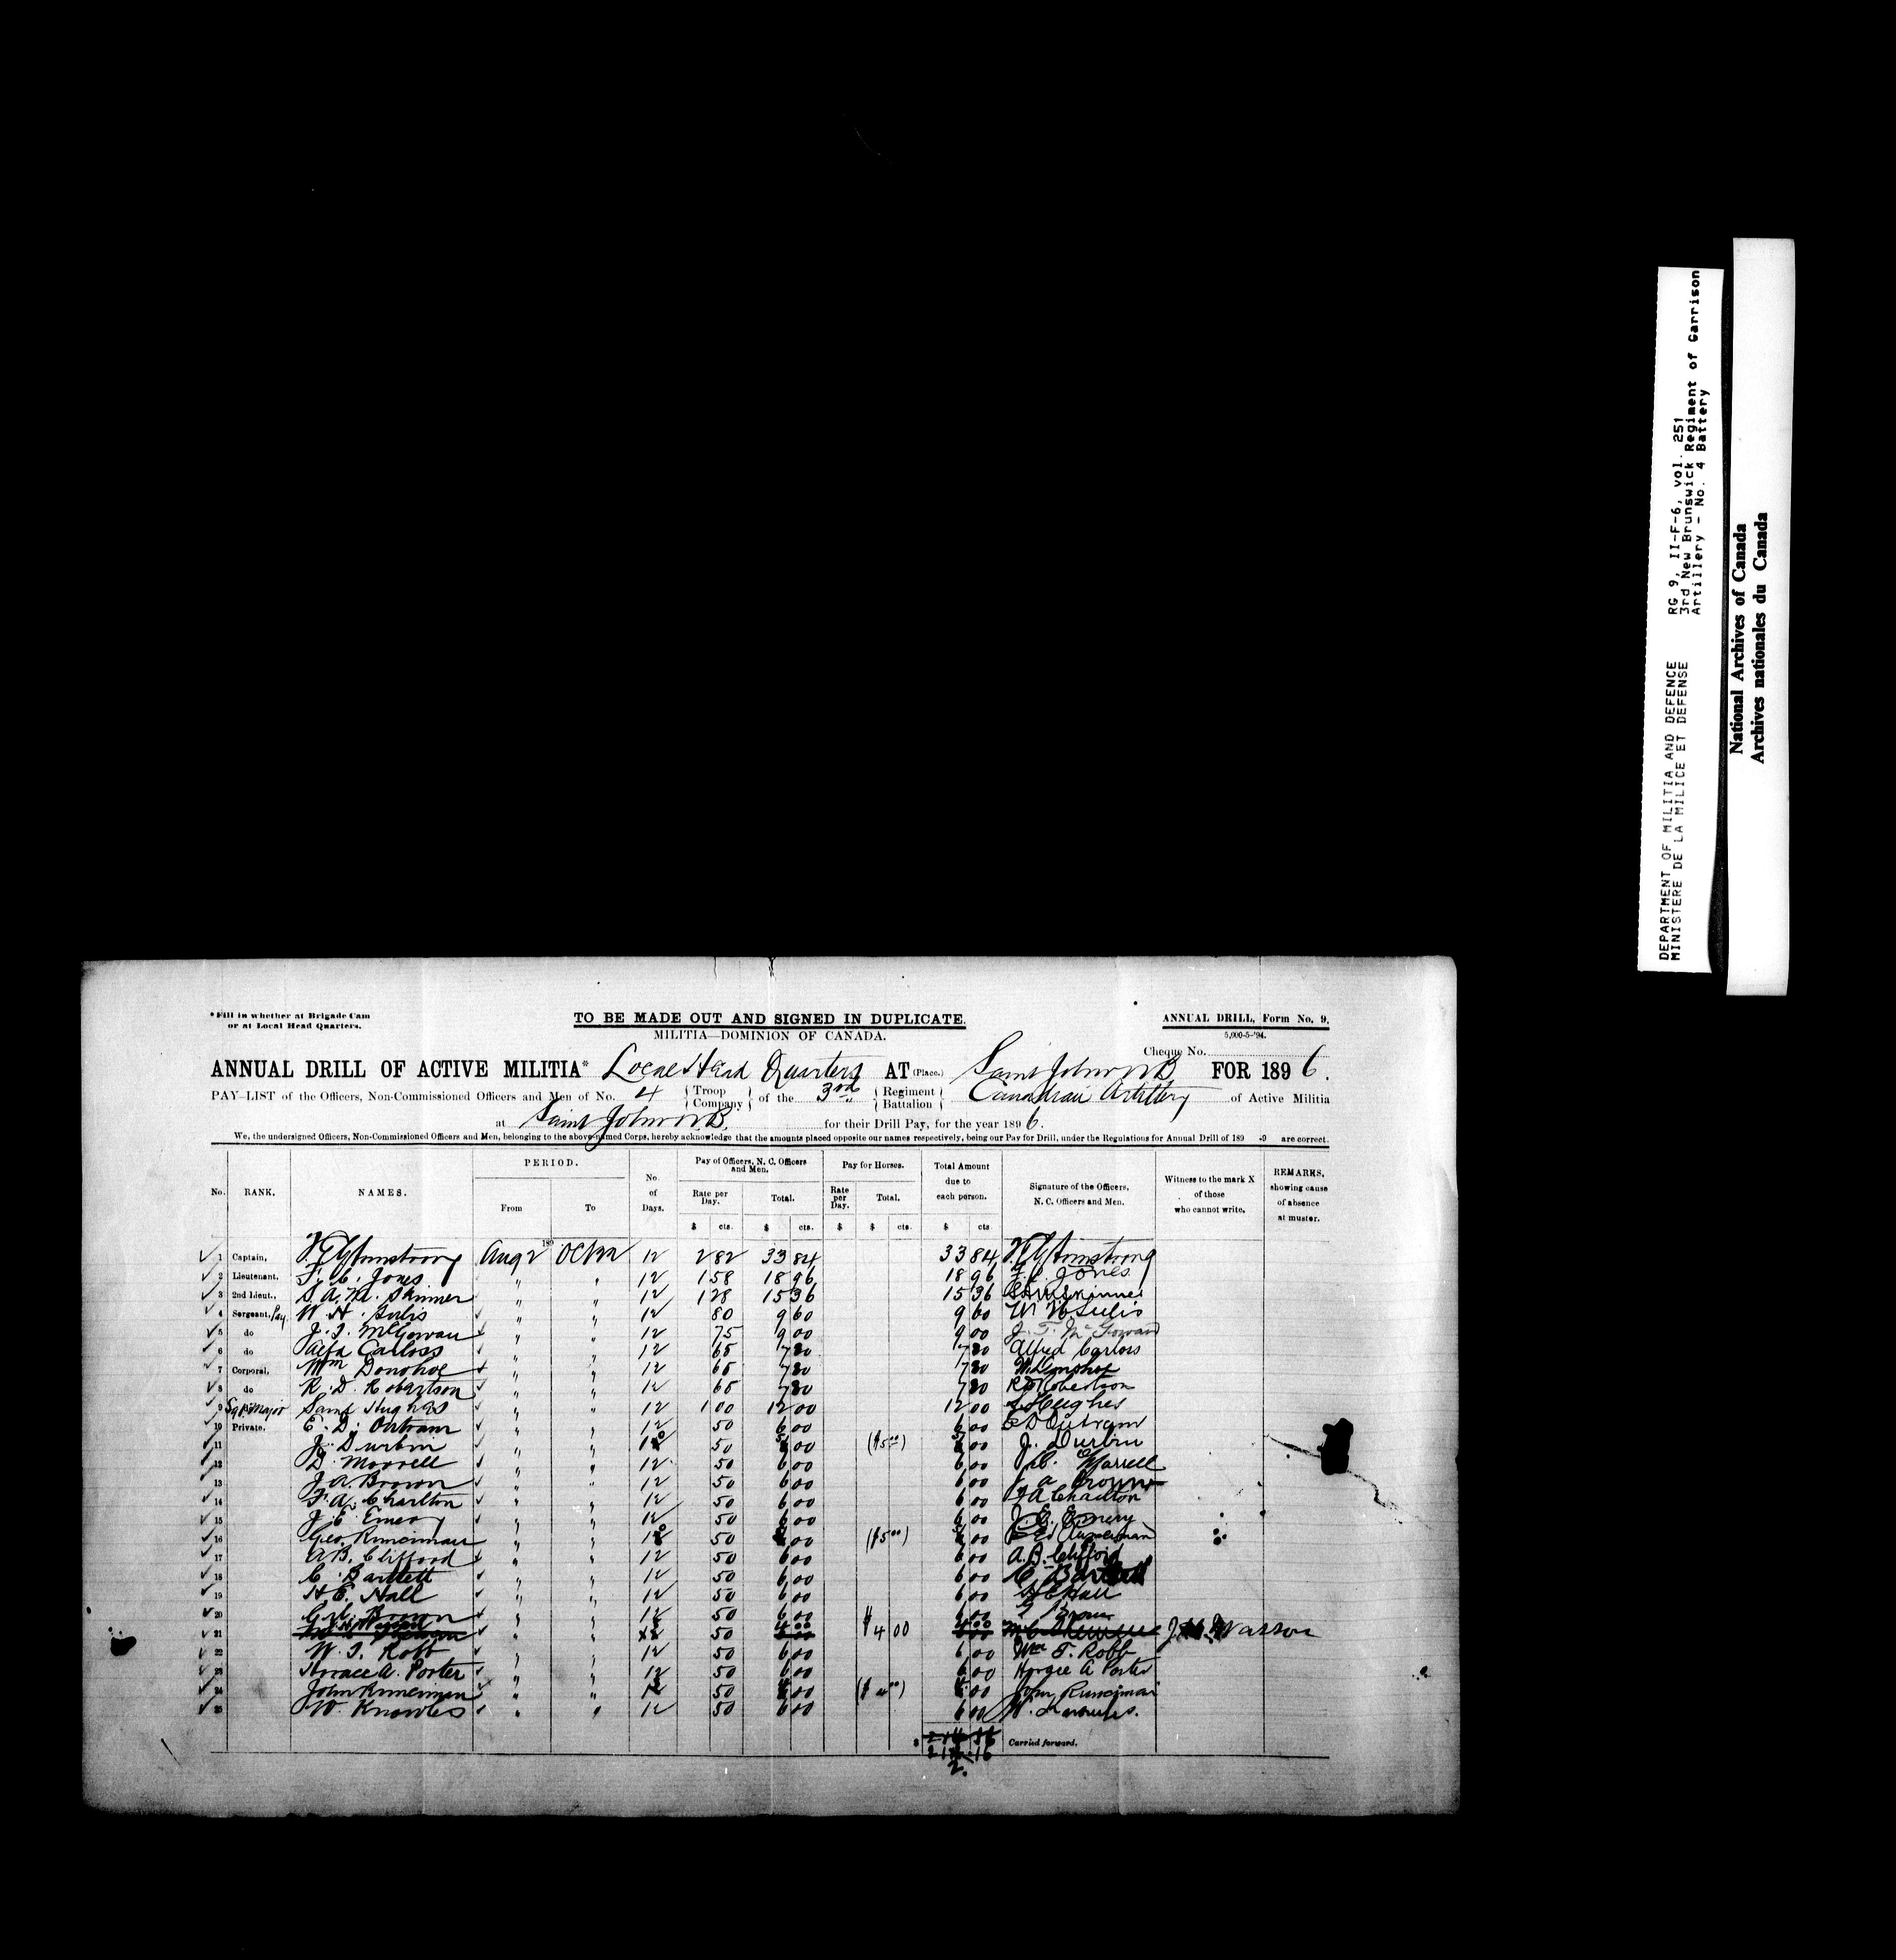 *Fill in whether at Brigade Cam
or at Local Head Quarters.
TO BE MADE OUT AND SIGNED IN DUPLICATE.
MILITIA—DOMINION OF CANADA.
ANNUAL DRILL, Form No. 9.
5,000-5-'94.
Cheque No.
ANNUAL DRILL OF ACTIVE MILITIA* Local Head Quarters AT (Place.) Saint John N B FOR 1896.
PAY-LIST of the Officers, Non-Commissioned Officers and Men of No. 4 { Troop Company } of the 3rd { Regiment Battalion } Canadian Artillery of Active Militia
at Saint John N.B. for their Drill Pay, for the year 1896.
We, the undersigned Officers, Non-Commissioned Officers and Men, belonging to the above-named Corps, hereby acknowledge that the amounts placed opposite our names respectively, being our Pay for Drill, under the Regulations for Annual Drill of 189 -9 are correct.
No. RANK. NAMES. PERIOD. From To No. of Days. Pay of Officers, N. C. Officers and Men. Rate per Day. Total. Pay for Horses. Rate per Day. Total. Total Amount due to each person. Signature of the Officers, N. C. Officers and Men. Witness to the mark X of those who cannot write. REMARKS, showing cause of absence at muster.
$ cts. $ cts. $ $ cts. $ cts.
189
1 Captain, Armstrong Aug 2 12 2 82 33 84 33 84 Armstrong
2 Lieutenant. F. C. Jones " " 12 1 58 18 96 18 96 F. C. Jones
3 2nd Lieut., S. A. M. Skinner " " 12 1 28 15 36 15 36 Skinner
4 Sergeant, Pay W. H. " " 12 80 9 60 9 60 W H
5 do J. T. McGowan " " 12 75 9 00 9 00 J. T. McGowan
6 do Alfd Carloss " " 12 65 7 80 7 80 Alfred Carloss
7 Corporal, Wm Donohoe " " 12 65 7 80 7 80 W. Donohoe
8 do R. D. Robertson " " 12 65 7 80 7 80 R D Robertson
9 Sgt Major Saml Hughes " " 12 1 00 12 00 12 00 S Hughes
10 Private. E. D. Outram " " 12 50 6 00 6 00 E D Outram
11 J. Durbin " " 10 50 5 00 ($5 00) 5 00 J. Durbin
12 D. Morrell " " 12 50 6 00 6 00 Morrell
13 J. A. Brown " " 12 50 6 00 6 00 J a Brown
14 F. A. Charlton " " 12 50 6 00 6 00 F A Charlton
15 J. E. Emery " " 12 50 6 00 6 00 J. E. Emery
16 Geo. Runciman " " 10 50 5 00 ($5 00) 5 00 Geo Runciman
17 A B. Clifford " " 12 50 6 00 6 00 A. B. Clifford
18 C. Bartlett " " 12 50 6 00 6 00 C Bartlett
19 H E. Hall " " 12 50 6 00 6 00 H E Hall
20 Brown " " 12 50 6 00 6 00 Brown
21 " " 50 4 00 $4 00 4 00 Wasson
22 W. T. Robb " " 12 50 6 00 6 00 Wm T. Robb
23 Horace A. Porter " " 12 50 6 00 6 00 Horace A Porter
24 John Runciman " " 50 4 00 ($4 00) 4 00 John Runciman
25 W. Knowles " " 12 50 6 00 6 00 W. Knowles.
$ Carried forward.
16
2.
DEPARTMENT OF MILITIA AND DEFENCE
MINISTERE DE LA MILICE ET DEFENSE
RG 9, II-F-6, vol. 251
3rd New Brunswick Regiment of Garrison
Artillery - No. 4 Battery
National Archives of Canada
Archives nationales du Canada